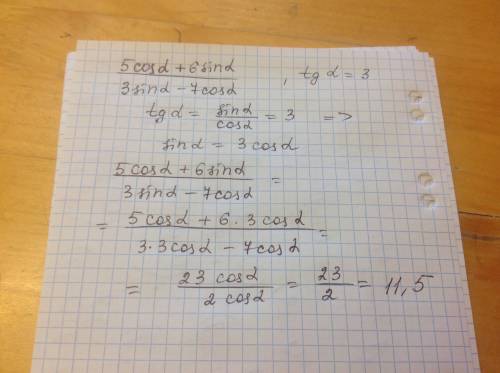 5cosα + 6sinα / 3sinα − 7cosα , tg α = 3
tg α = sinα / cosα = 3 =>
sinα = 3 cosα
5cosα + 6sinα / 3sinα − 7cosα =
= 5cosα + 6 · 3cosα / 3·3cosα − 7cosα =
= 23 cosα / 2 cosα = 23 / 2 = 11,5